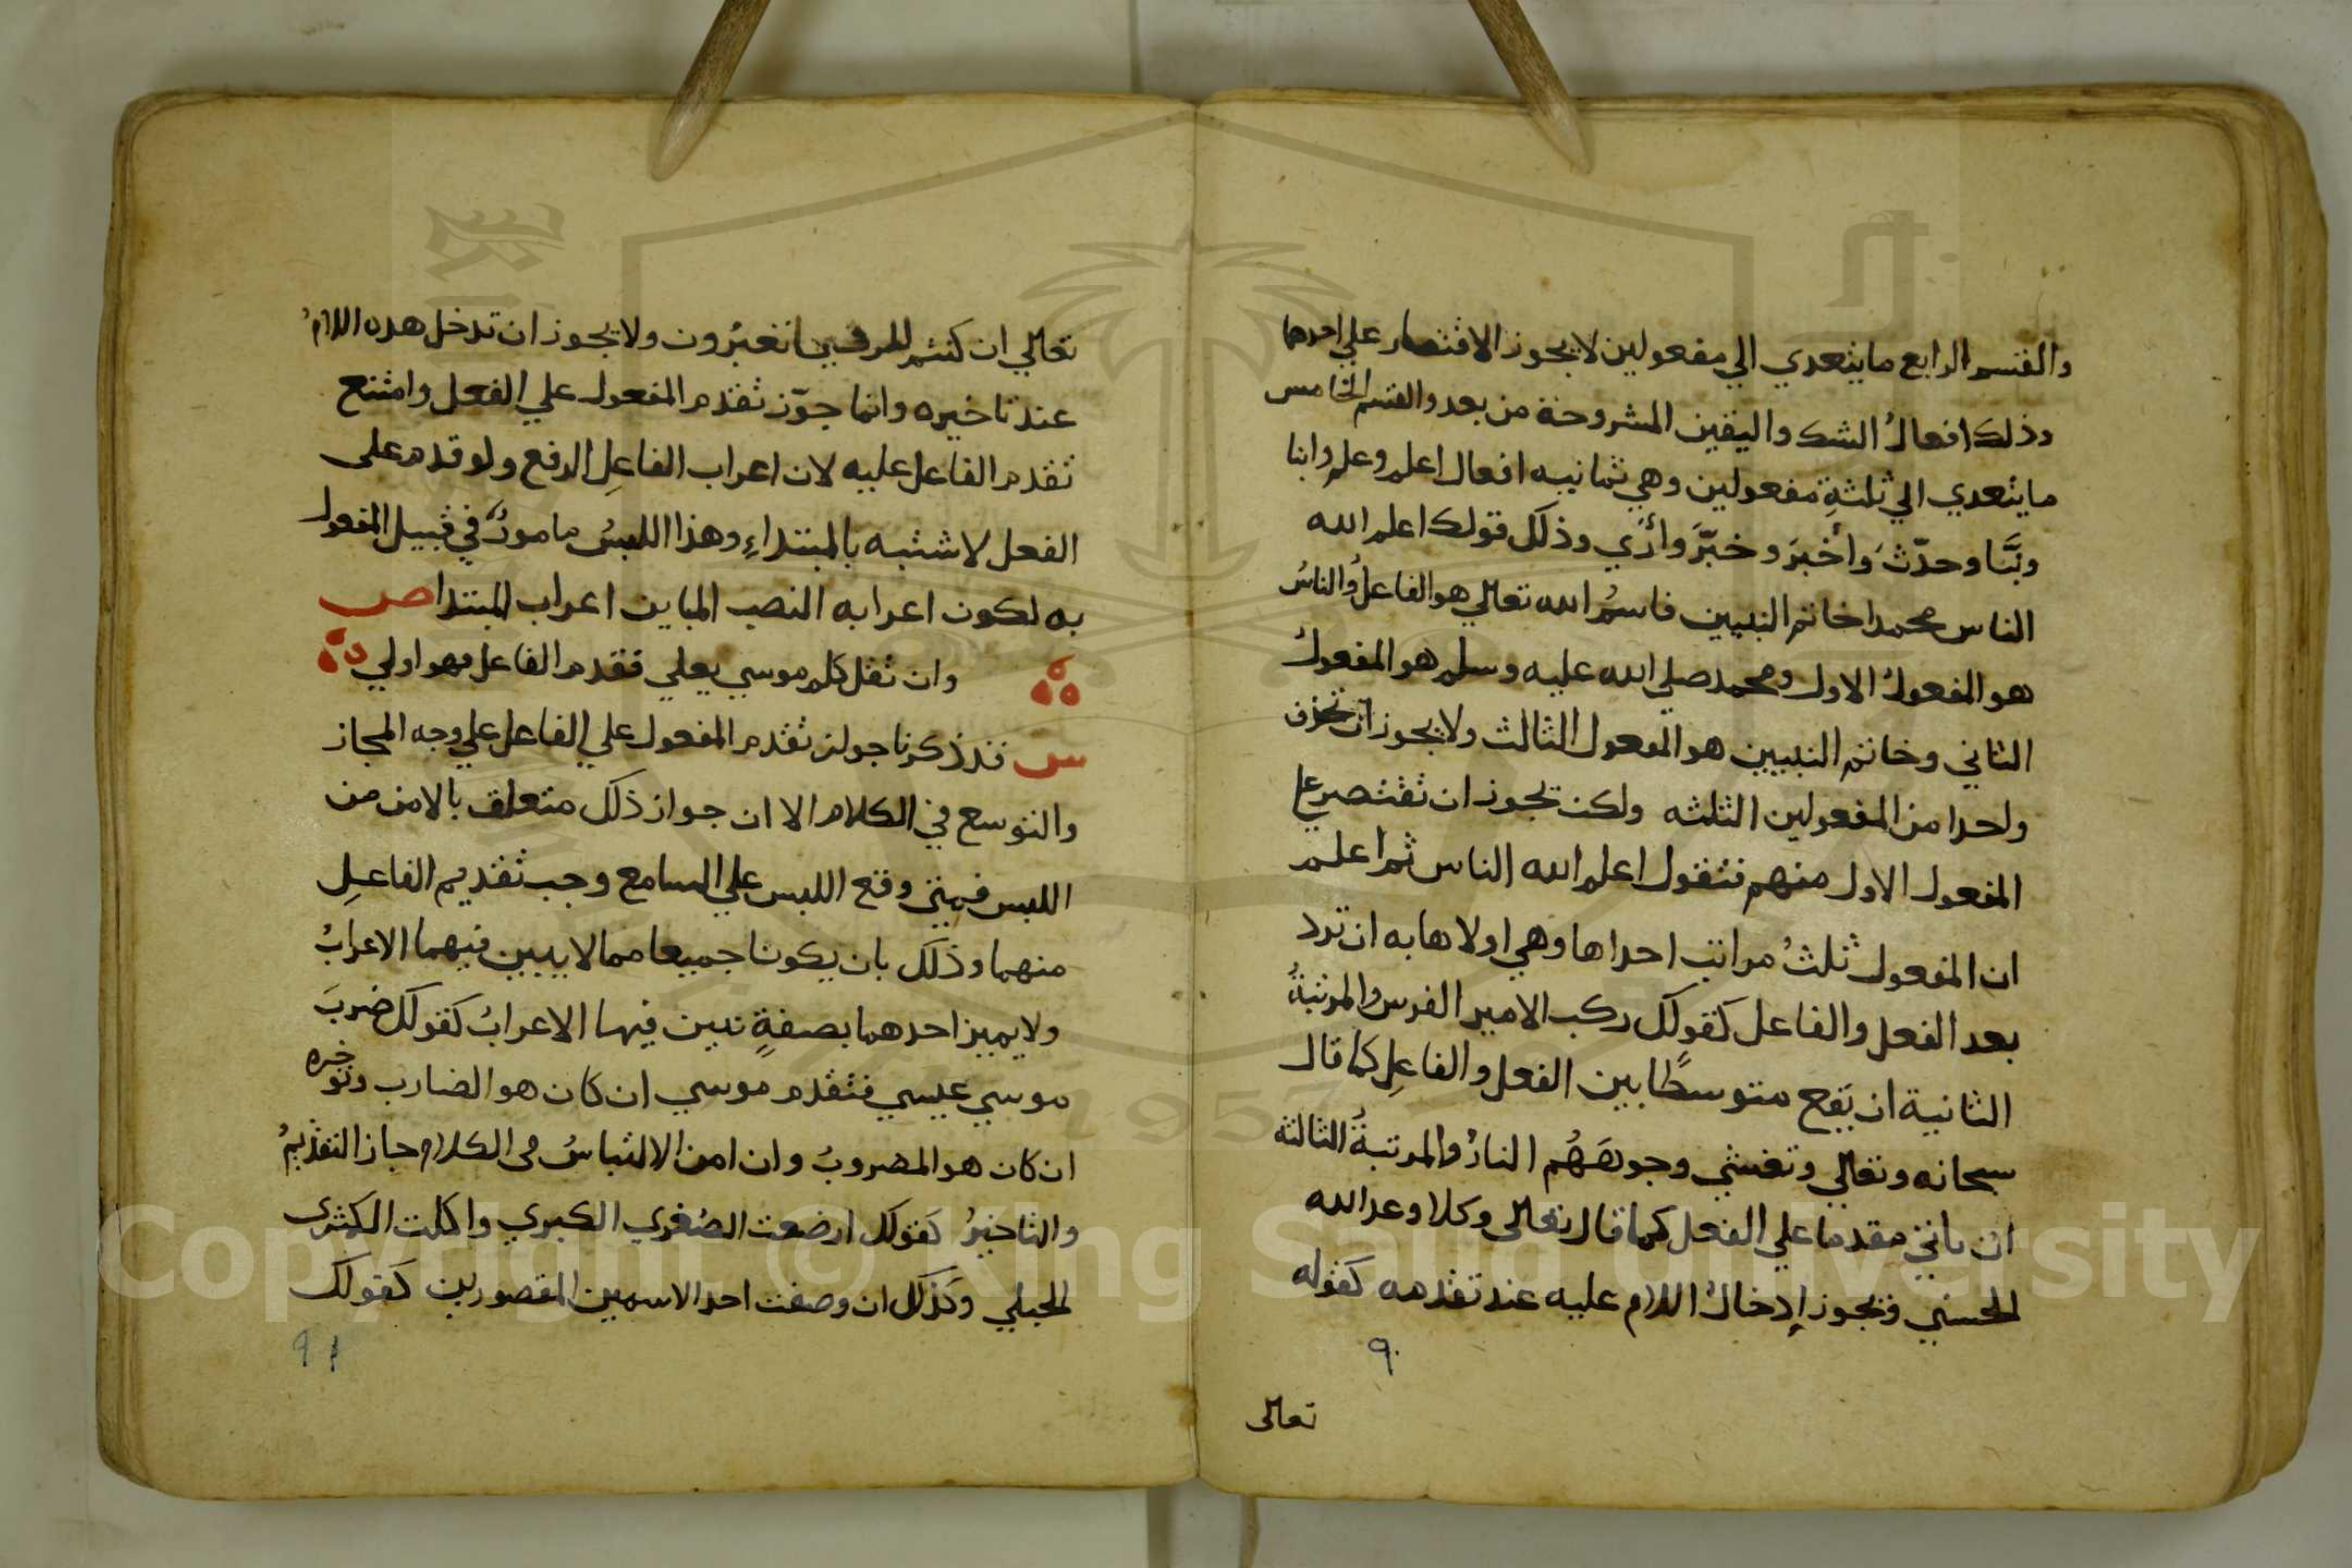 والقسم الرابع ما يتعدي الي مفعولين لا يجوز الاقتصار علي احدهما
وذلك افعالُ الشك واليقين المشروحة من بعد والقسم الخامس
ما يتعدي الي ثلثةِ مفعولين وهي ثمانيه افعال اعلم وعلم وانبا
ونبَّا وحدّثَ وأخبرَ وخبّرَ وأرَي وذلك قولك اعلم الله
الناس محمدا خاتم النبيين فاسمُ الله تعالي هو الفاعلُ والناسُ
هو المفعولُ الاول ومحمد صلي الله عليه وسلم هو المفعولُ
الثاني وخاتم النبيين هو المفعول الثالث ولا يجوز ان تحذف
واحدا من المفعولين الثلثه ولكن يجوز ان تقتصر علي
المفعول الاول منهم فتقول اعلم الله الناس ثم اعلم
ان المفعول ثلثُ مراتب احداها وهي اولاها به ان ترد
بعد الفعل والفاعل كقولك ركب الامير الفرس والمرتبةُ
الثانية ان يقع متوسطًا بين الفعل والفاعِل كما قال
سبحانه وتعالي وتغشي وجوهَهُم النارُ والمرتبةُ الثالثه
ان ياتي مقدما علي الفعل كما قال تعالى وكلا وعد الله
الحسني ويجوز إدخالُ اللام عليه عند تقدمه كقوله
٩٠
تعالى
تعالي ان كنتم للرؤيا تعبُرون ولا يجوز ان تدخل هذه اللامُ
عند تاخيره وانما جوّز تقدم المفعول علي الفعل وامتنع
تقدم الفاعل عليه لان اعراب الفاعِل الرفع ولو قدم على
الفعل لاشتبه بالمبتداءِ وهذا اللبسُ مامونٌ في قبيل المفعول
به لكون اعرابه النصب المباين اعراب المبتدا ص
وان تقل كلم موسي يعلي فقدم الفاعل فهو اولي
س قد ذكرنا جواز تقدم المفعول علي الفاعل علي وجه المجاز
والتوسع في الكلام الا ان جواز ذلك متعلق بالامن من
اللبس فمتي وقع اللبس علي السامع وجب تقديم الفاعِل
منهما وذلك بان يكونا جميعا مما لا يبين فيهما الاعرابُ
ولا يميز احدهما بصفةٍ تبين فيها الاعرابُ كقولك ضربَ
موسي عيسي فتقدم موسي ان كان هو الضارب وتؤخره
ان كان هو المضروبُ وان امن الالتباسُ في الكلام جاز التقديمُ
والتاخيرُ كقولك ارضعت الصُغري الكبري واكلت الكمثرى
الحبلي وكذلك ان وصفت احد الاسمين المقصورين كقولك
٩١
Copyright © King Saud University
1957